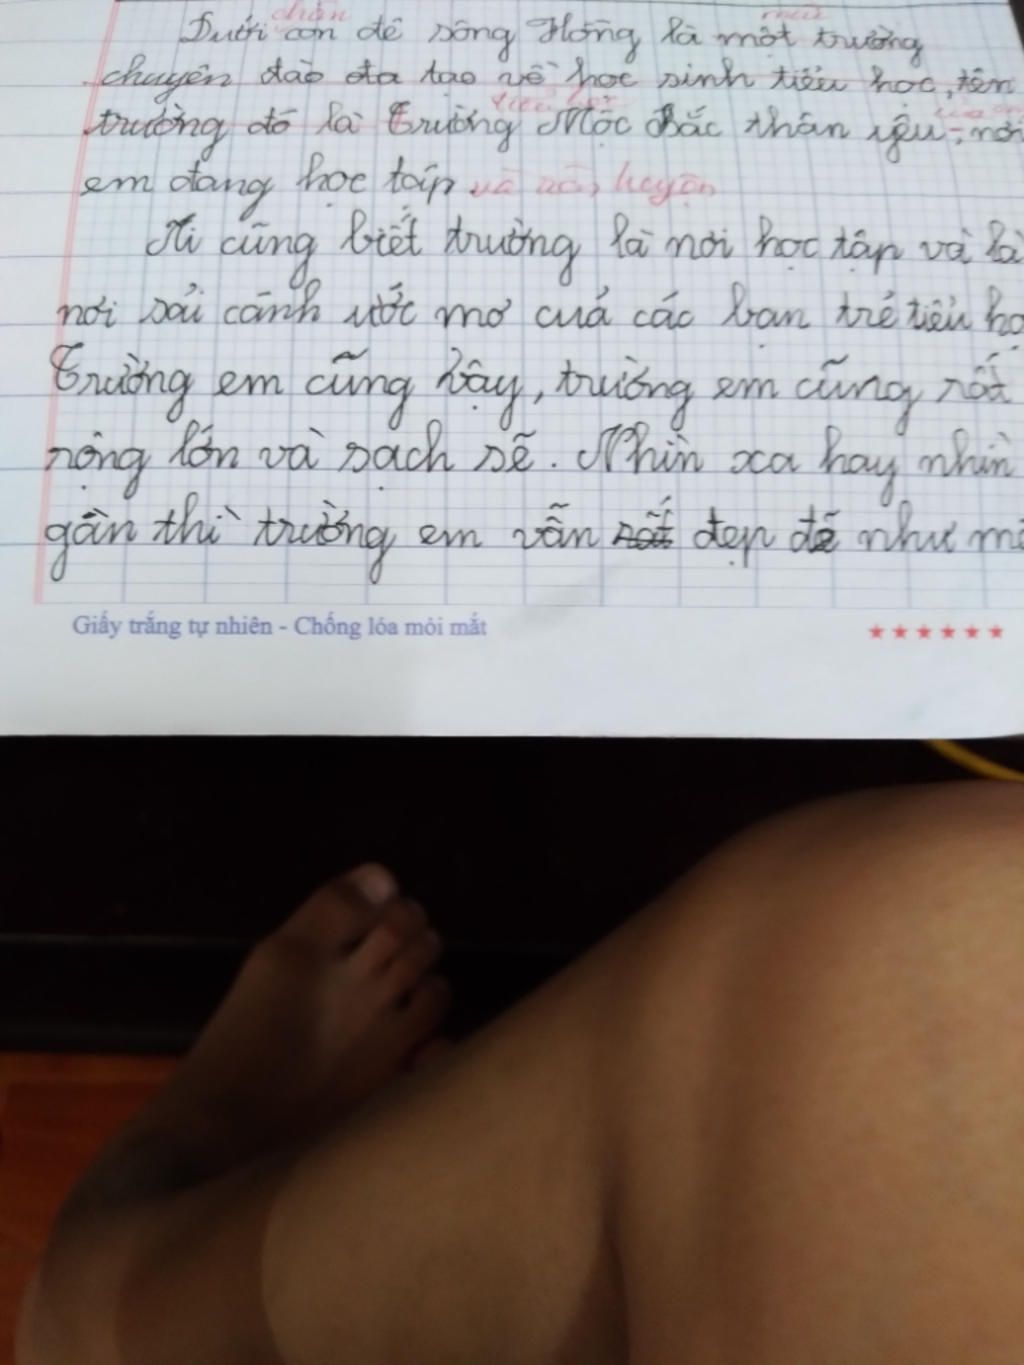 chân
Dưới con đê sông Hồng là một trường
chuyên đào đta tạo về học sinh tiểu học, tên
tiểu học
trường đó là Trường Mộc Bắc thân yêu, nơi
em đang học tập và rèn luyện
Ai cũng biết trường là nơi học tập và là
nơi sải cánh ước mơ cuả các bạn trẻ tiểu họ
Trường em cũng vậy, trường em cũng rất
rộng lớn và sạch sẽ. Nhìn xa hay nhìn
gần thì trường em vẫn rất đẹp đẽ như mộ
Giấy trắng tự nhiên - Chống lóa mỏi mắt